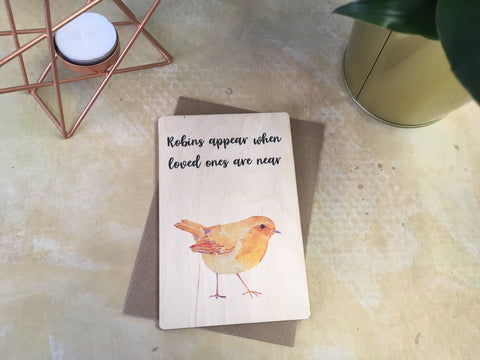 Robins appear when
loved ones are near